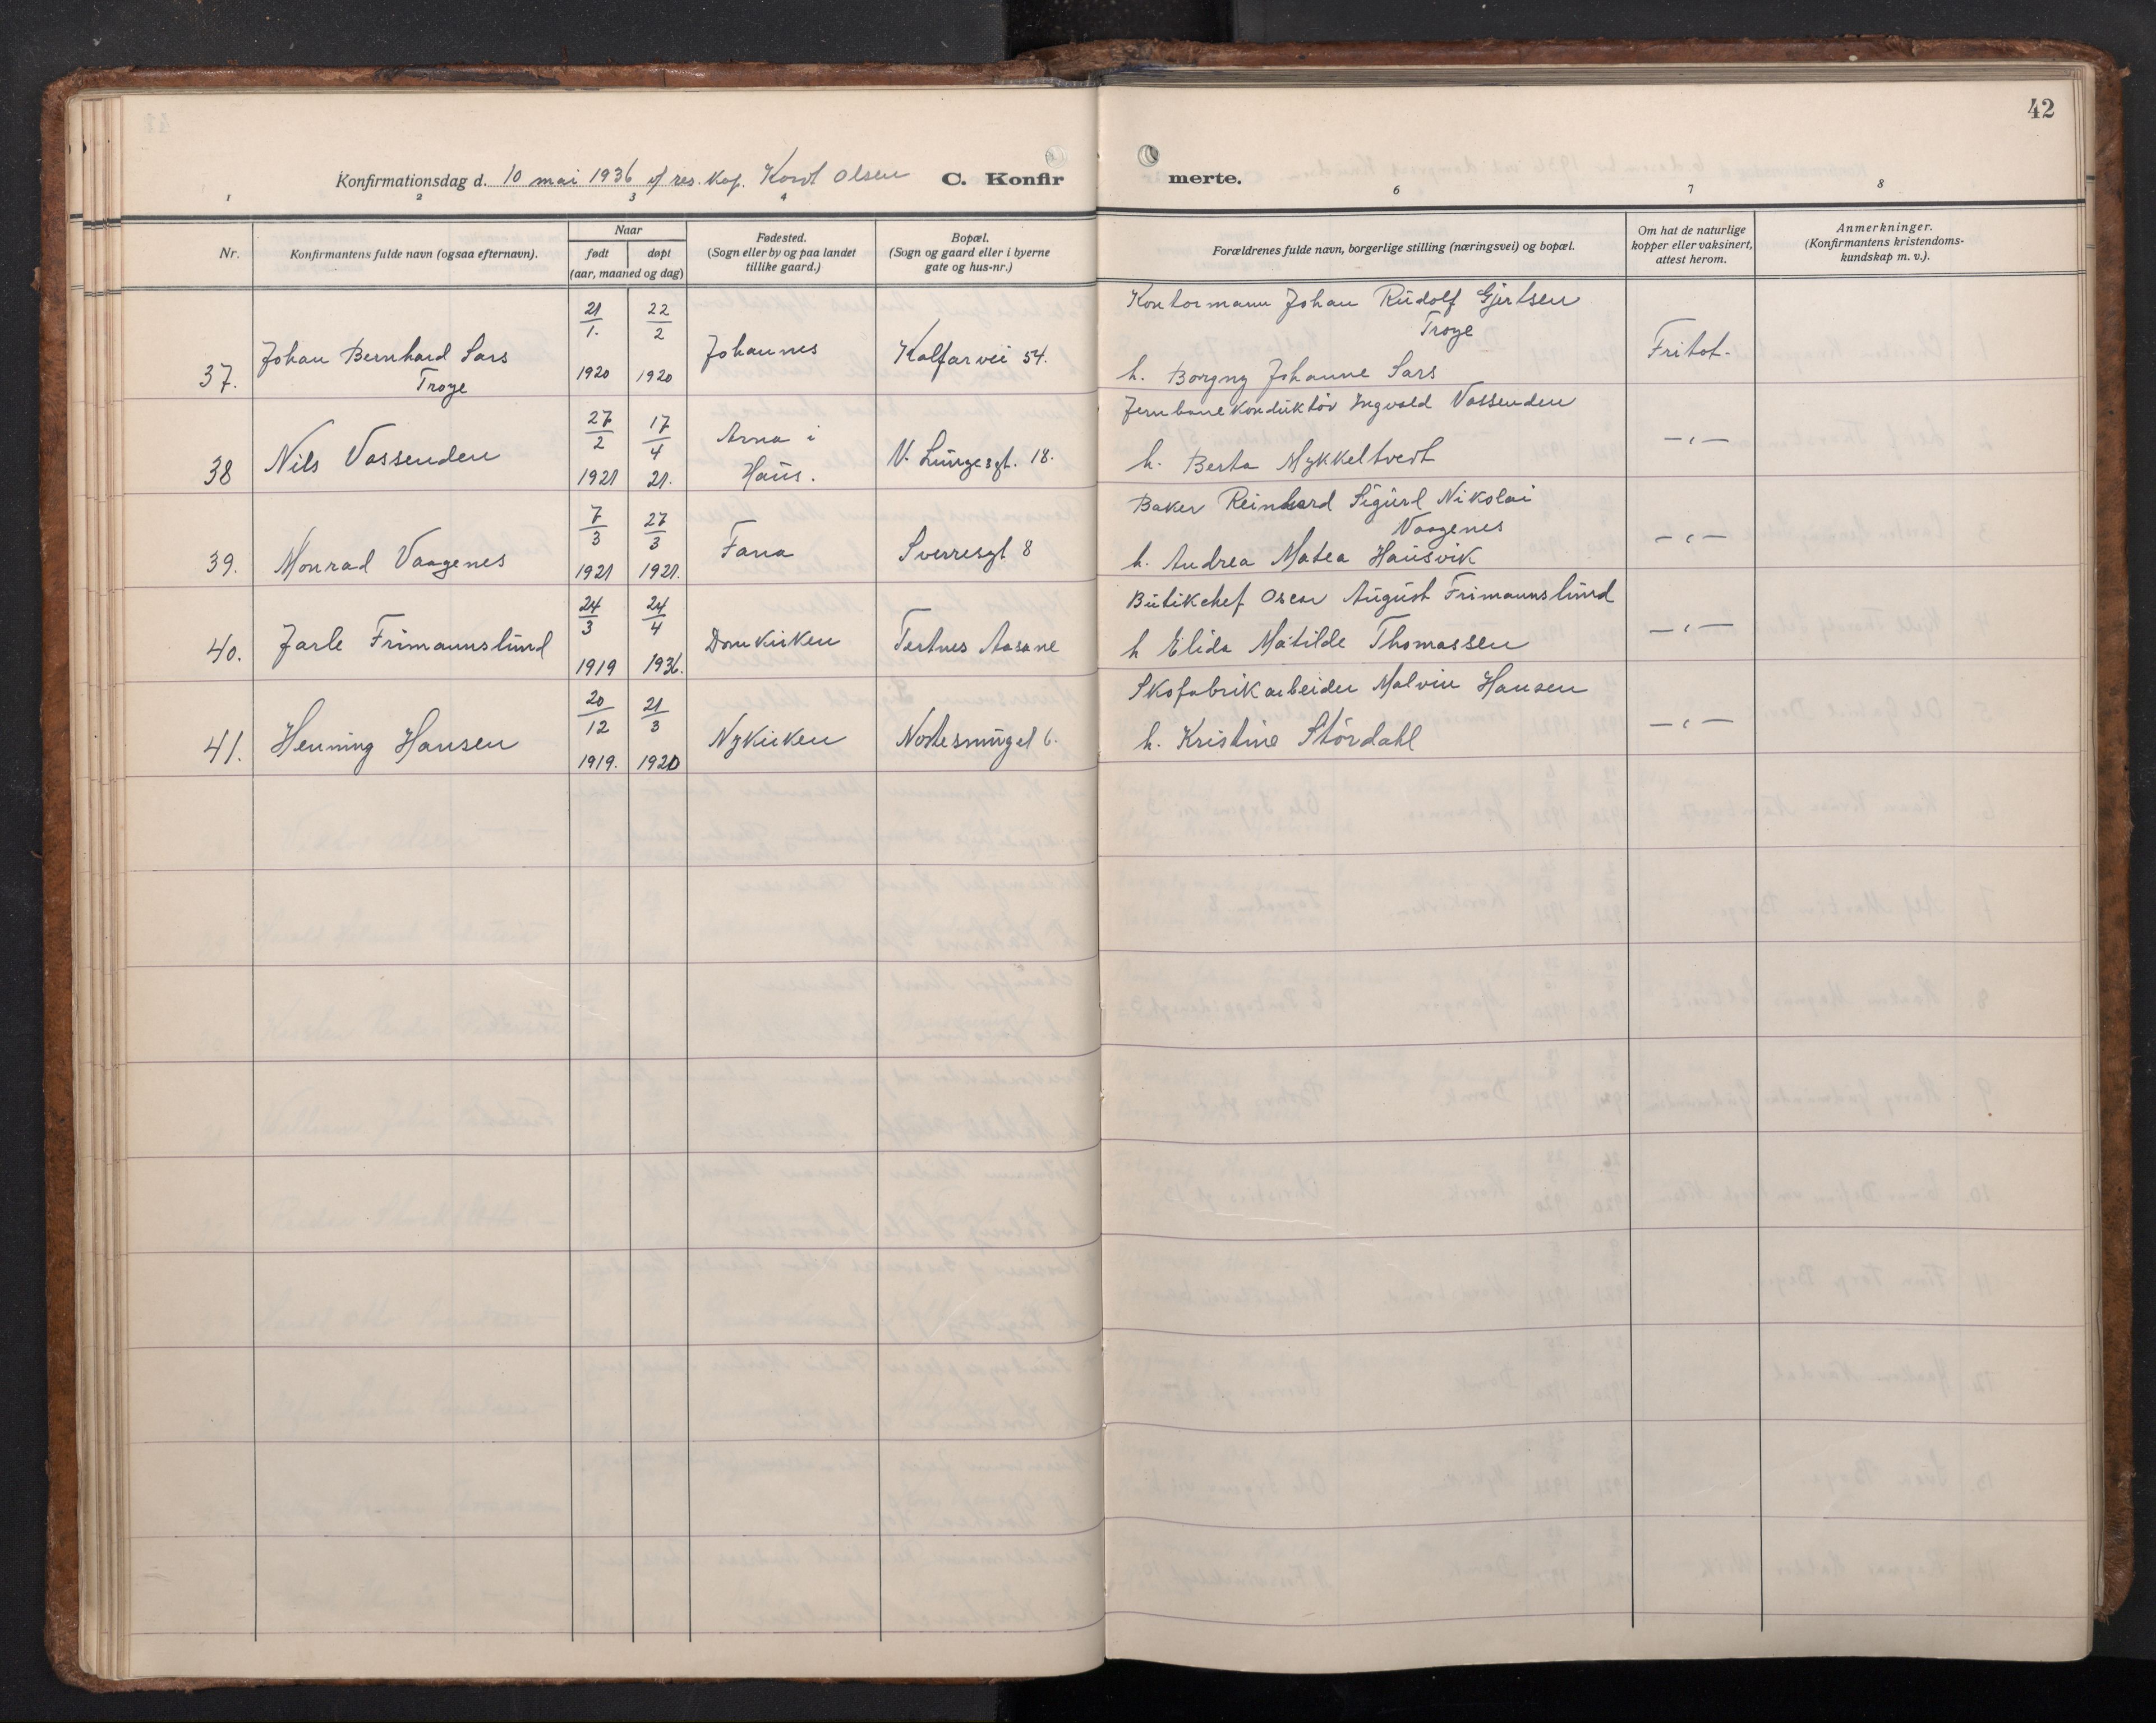 42
Konfirmationsdag d. 10 mai 1936 v/ res. kap. Kordt Olsen C. Konfirmerte.
1 2 3 4 6 7 8
Nr. | Konfirmantens fulde navn (ogsaa efternavn). | Naar født døpt (aar, maaned og dag) | Fødested. (Sogn eller by og paa landet tillike gaard.) | Bopæl. (Sogn og gaard eller i byerne gate og hus-nr.) | Forældrenes fulde navn, borgerlige stilling (næringsvei) og bopæl. | Om hat de naturlige kopper eller vaksinert, attest herom. | Anmerkninger. (Konfirmantens kristendomskundskap m. v.).
37. | Johan Bernhard Sars Troye | 21/1. 1920 | 22/2 1920 | Johannes | Kalfarvei 54. | Kontormann Johan Rudolf Gjertsen Troye h. Borgny Johanne Sars | Fritat.
38 | Nils Vassenden | 27/2 1921 | 17/4 21. | Arna i Haus. | N. Lungegt. 18. | Jernbanekonduktør Ingvald Vassenden h. Berta Mykkeltvedt | —"—
39. | Monrad Vaagenes | 7/3 1921 | 27/3 1921. | Fana | Sverresgt 8 | Baker Reinhard Sigurd Nikolai Vaagenes h. Andrea Matea Hausvik | —"—
40. | Jarle Frimannslund | 24/3 1919 | 24/4 1936. | Domkirken | Tertnes Aasane | Butikchef Oscar August Frimannslund h Elida Matilde Thomassen | —"—
41. | Henning Hansen | 20/12 1919. | 21/3 1920 | Nykirken | Nøstesmuget 6. | Skofabrikarbeider Malvin Hansen h. Kristine Størdahl | —"—